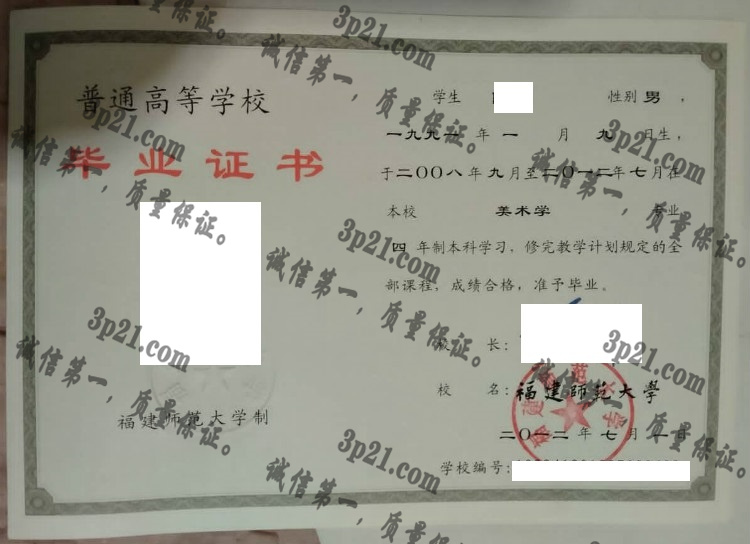 普通高等学校
毕业证书
福建师范大学制
学生 性别男，
一九九一年一月九日生，
于二〇〇八年九月至二〇一二年七月在
本校 美术学 专业
四年制本科学习，修完教学计划规定的全
部课程，成绩合格，准予毕业。
校 长：
校 名：福建师范大学
二〇一二年七月一日
学校编号：
3p21.com
诚信第一，质量保证。
3p21.com
诚信第一，质量保证。
3p21.com
诚信第一，质量保证。
3p21.com
诚信第一，质量保证。
3p21.com
诚信第一，质量保证。
3p21.com
诚信第一，质量保证。
3p21.com
诚信第一，质量保证。
3p21.com
诚信第一，质量保证。